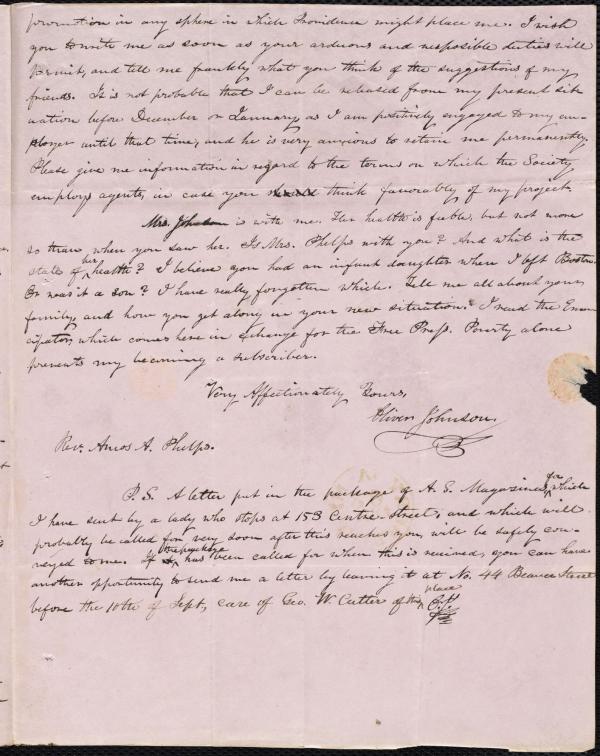 promotion in any sphere in which Providence might place me. I wish
you to write me as soon as your arduous and resposible duties will
permit, and tell me frankly what you think of the suggestions of my
friends. It is not probable that I can be released from my present sit-
uation before December or January, as I am positively engaged to my em-
ployer until that time, and he is very anxious to retain me permanently.
Please give me information in regard to the terms on which the Society
employs agents, in case you think favorably of my project.
Mrs. Johnson is with me. Her health is feeble, but not more
so than when you saw her. Is Mrs. Phelps with you? And what is the
state of her health? I believe you had an infant daughter when I left Boston.
Or was it a son? I have really forgotten which. Tell me all about your
family, and how you get along in your new situation. I read the Eman-
cipator, which comes here in exchange for the Free Press. Poverty alone
prevents my becoming a subscriber.
Very Affectionately Yours,
Oliver Johnson.
Rev. Amos A. Phelps.
P.S. A letter put in the package of A. S. Magazines, for which
I have sent by a lady who stops at 153 Centre Street, and which will
probably be called for very soon after this reaches you, will be safely con-
veyed to me. If the package has been called for when this is received, you can have
another opportunity to send me a letter by leaving it at No. 44 Beaver Street
before the 10th of Sept, care of Geo. W. Cutler of this place
O. J.